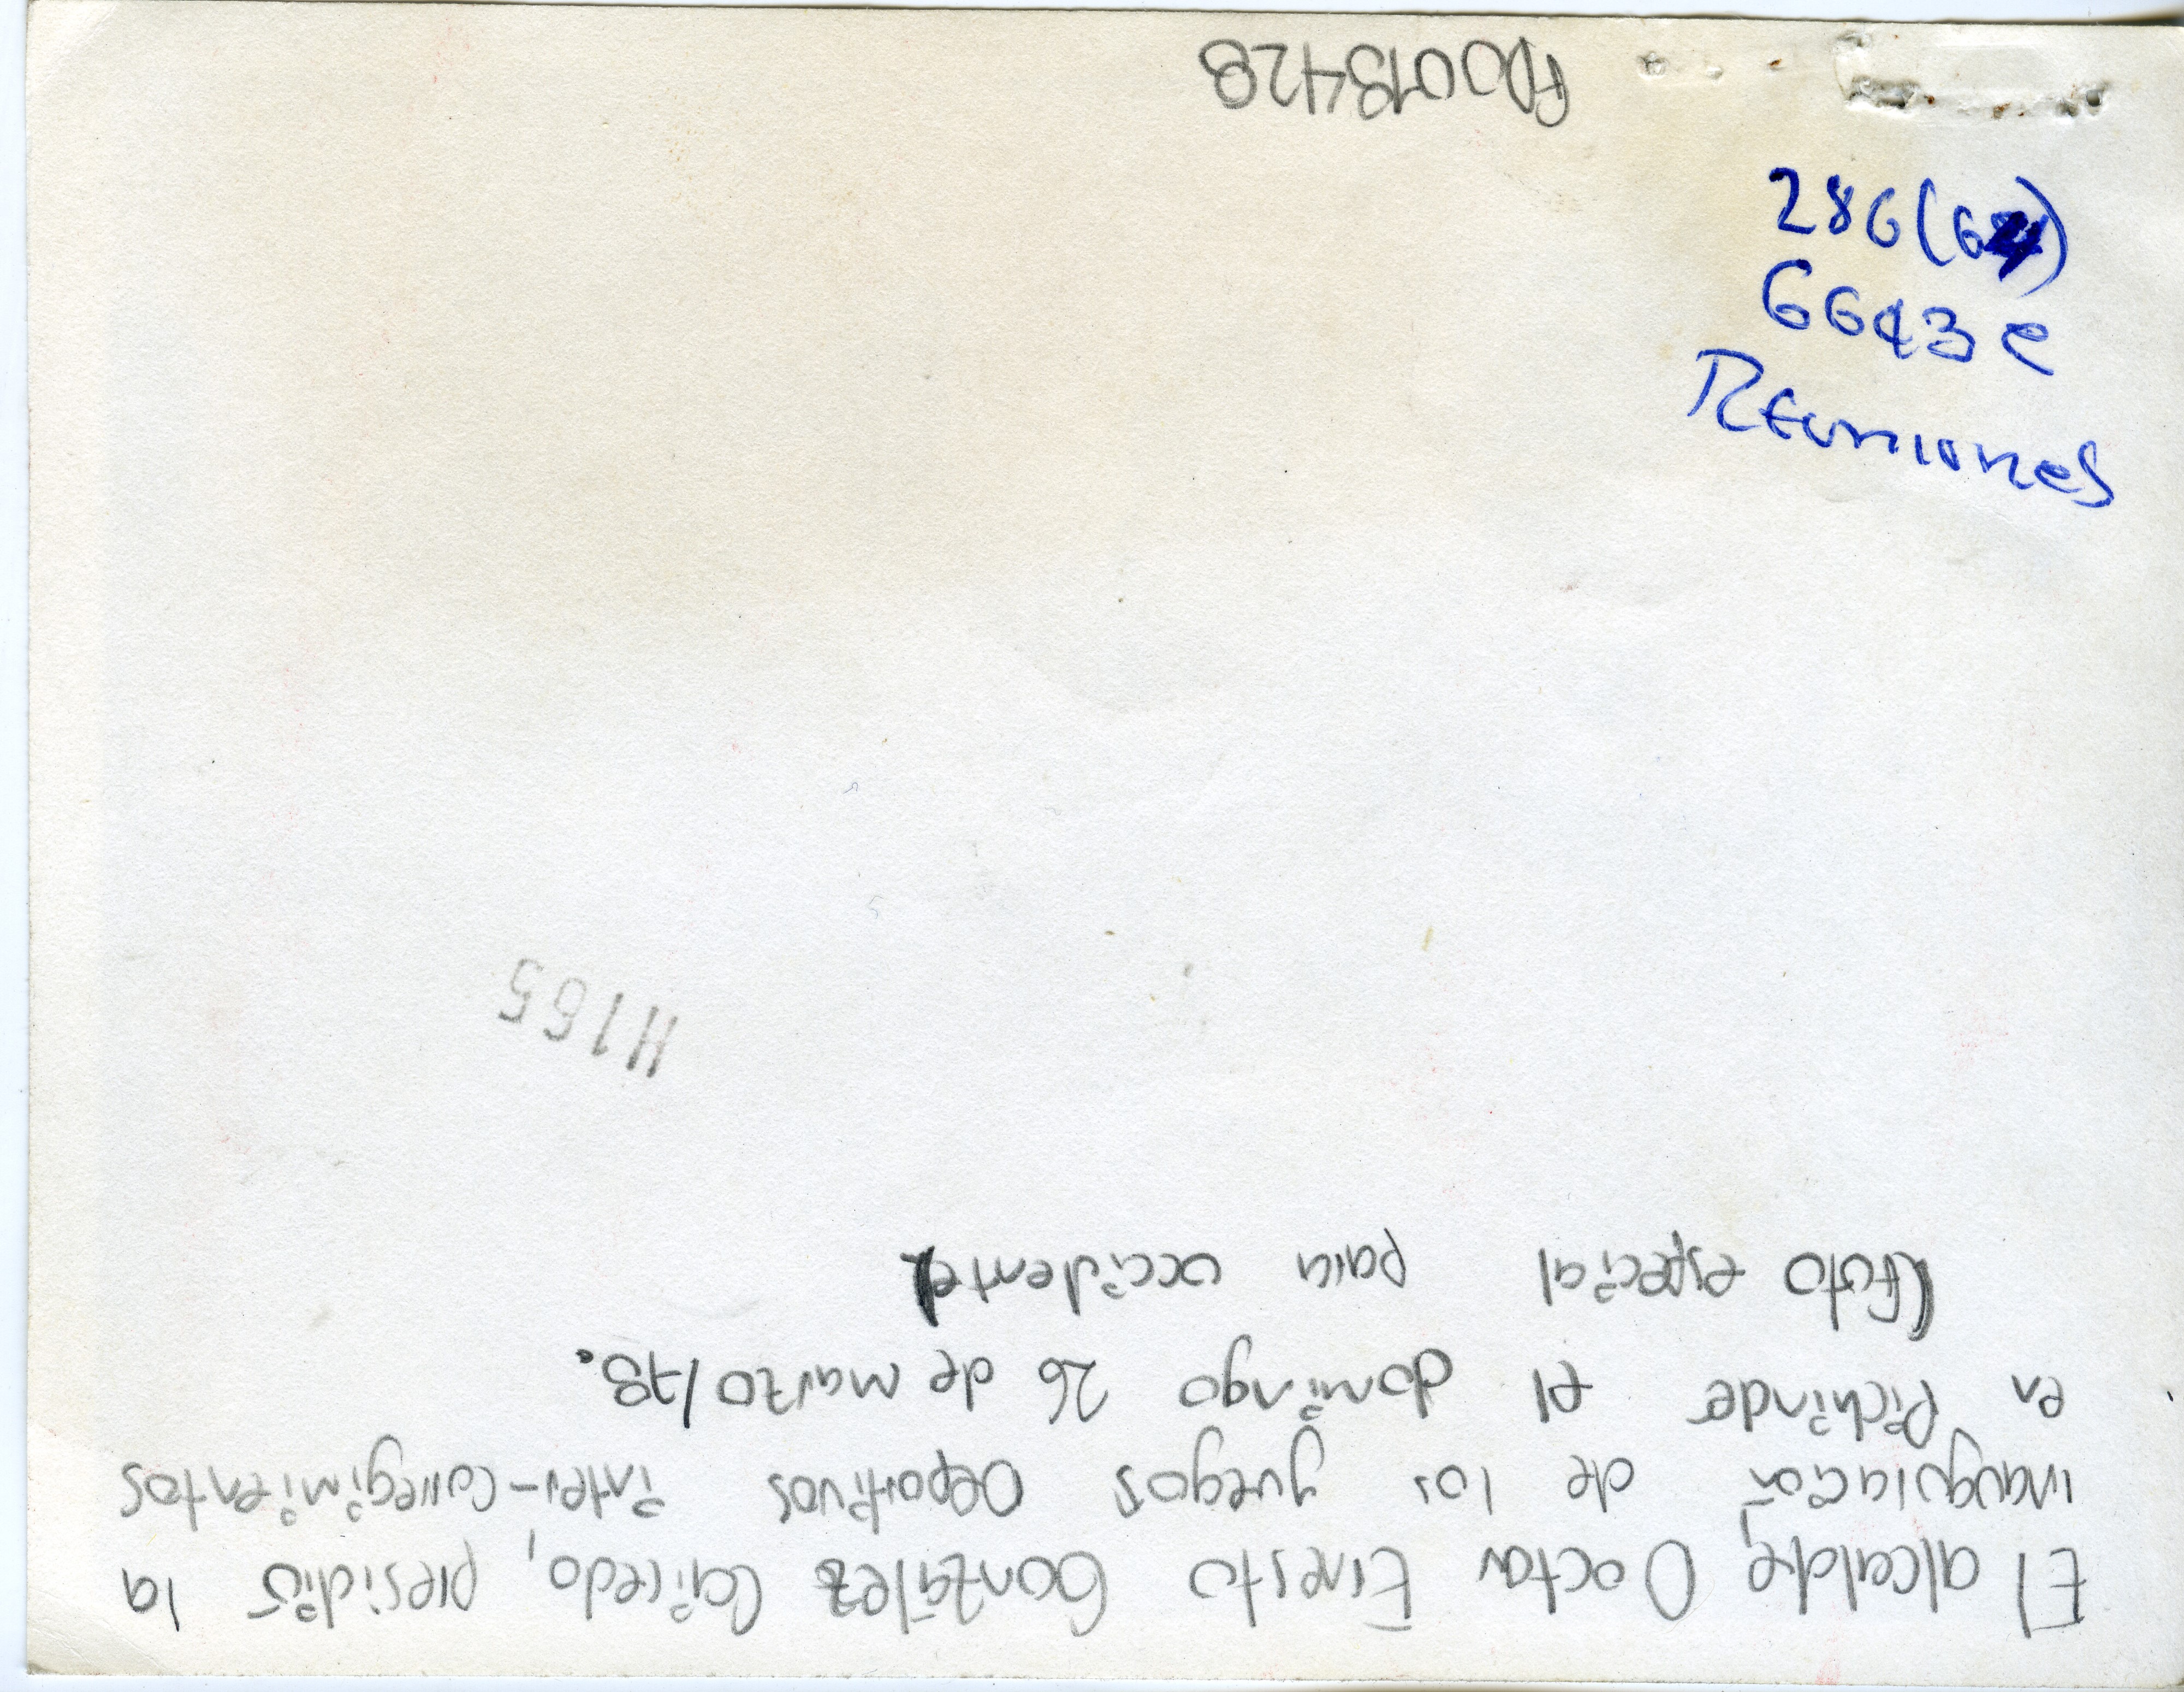 El alcalde, Doctor Ernesto González Caicedo, presidió la
inauguración de los juegos Deportivos inter-corregimientos
en Pichinde el domingo 26 de marzo/78.
(Foto especial para occidente)
H165
286(64)
6643 e
Reuniones